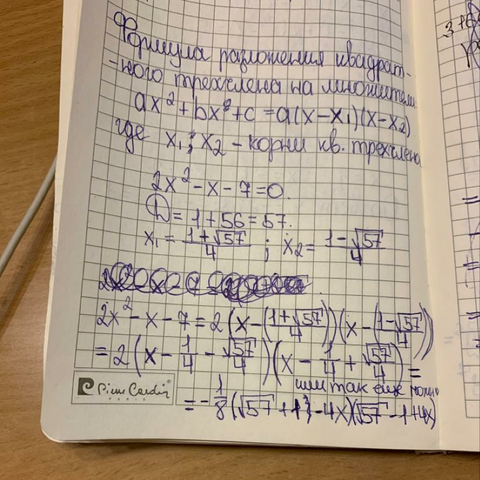 Формула разложения квадрат-
-ного трехчлена на множители
ax² + bx + c = a(x-x₁)(x-x₂)
где x₁; x₂ - корни кв. трехчлена
2x² - x - 7 = 0.
D = 1 + 56 = 57.
x₁ = (1+√57)/4 ; x₂ = (1-√57)/4
2x² - x - 7 = 2(x - (1+√57)/4)(x - (1-√57)/4)
= 2(x - 1/4 - √57/4)(x - 1/4 + √57/4) =
или так еще можно
= -1/8(√57 + 1 - 4x)(√57 - 1 + 4x)
Pierre Cardin
PARIS